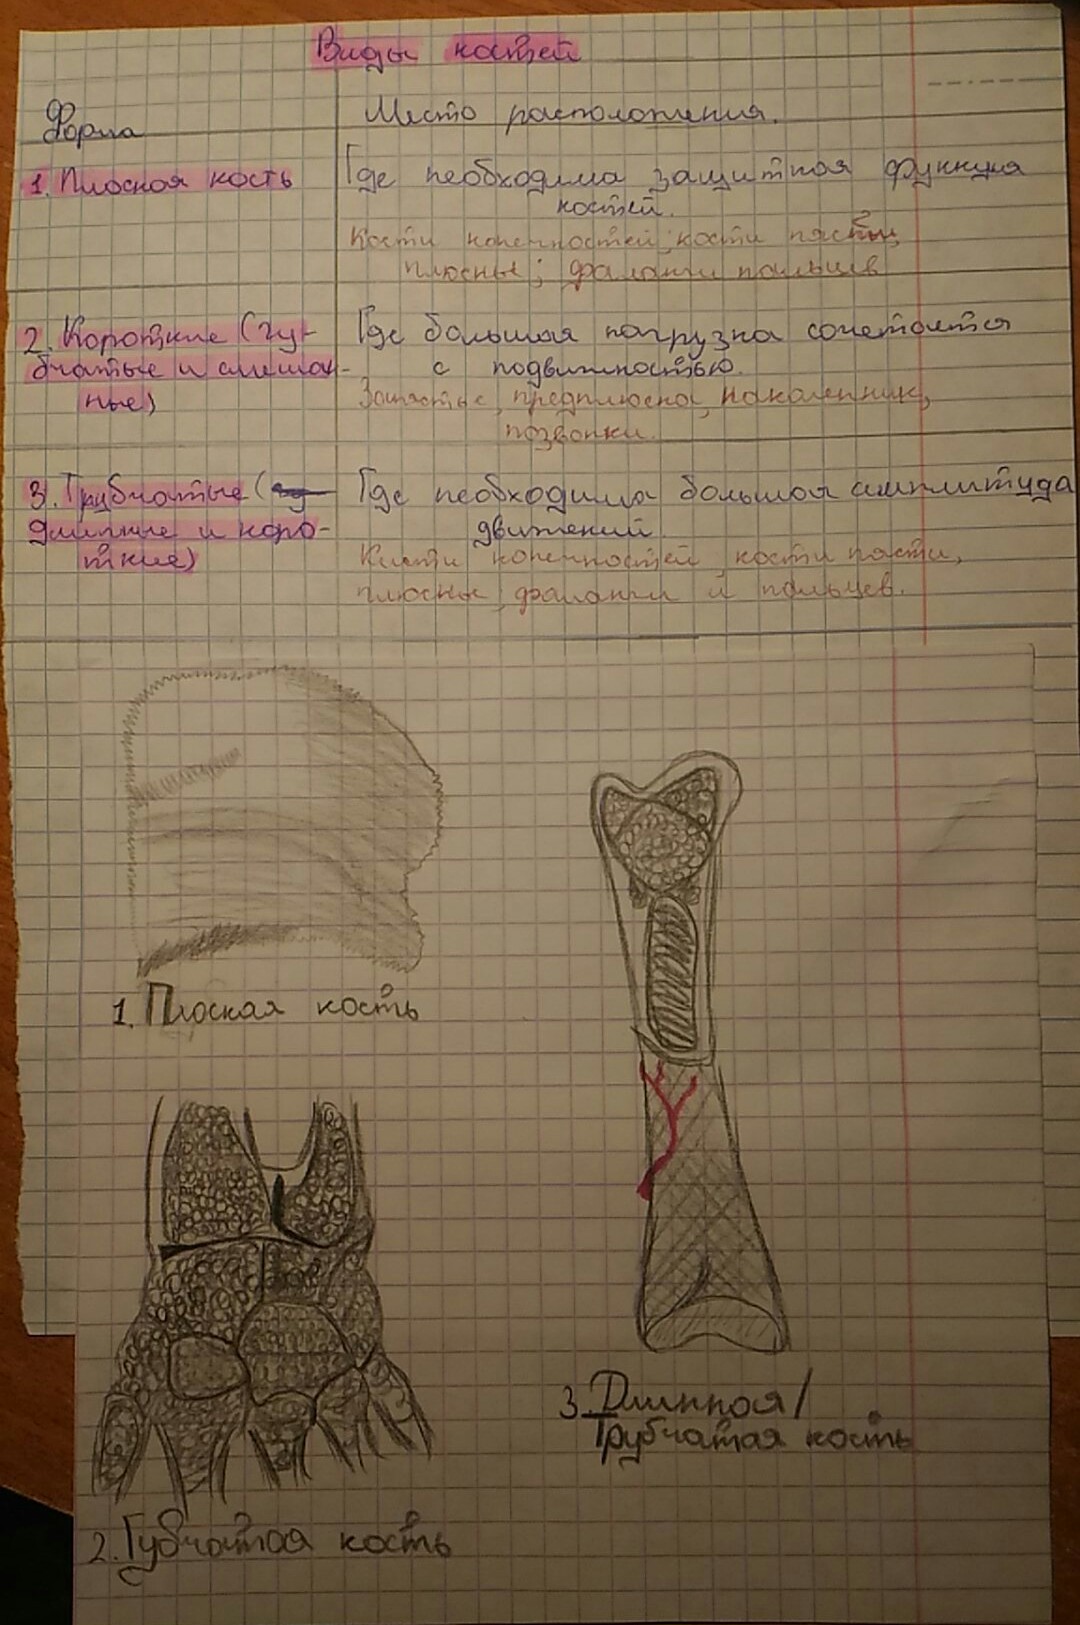 Виды костей
Форма
Место расположения.
1. Плоская кость
Где необходима защитная функция
костей.
Кости конечностей, кости пясти,
плюсны; фаланги пальцев
2. Короткие (гу-
бчатые и смешан-
ные)
Где большая нагрузка сочетается
с подвижностью.
Запястье, предплюсна, наколенник,
позвонки.
3. Трубчатые (
длинные и коро-
ткие)
Где необходима большая амплитуда
движений.
Кисти конечностей, кости пясти,
плюсны, фаланги и пальцев.
1. Плоская кость
3. Длинная/
Трубчатая кость
2. Губчатая кость